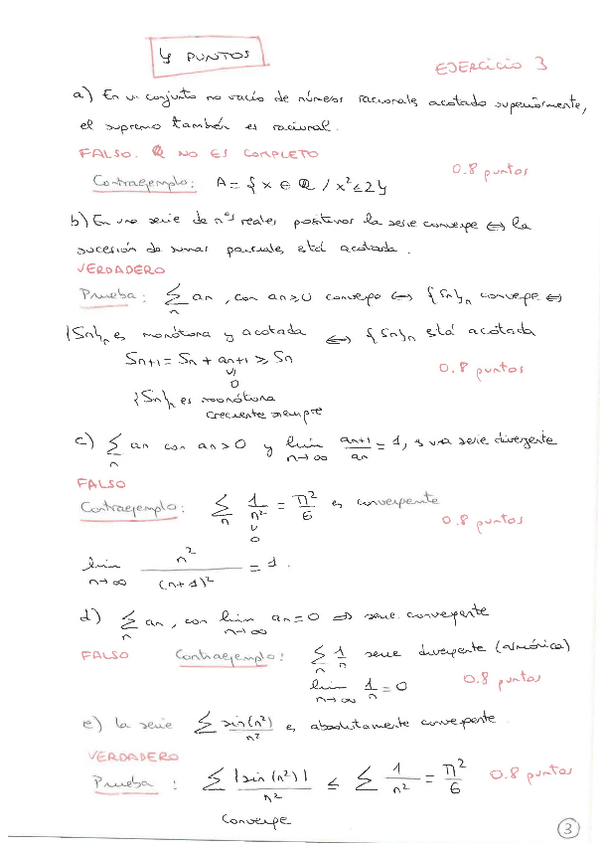 4 PUNTOS
EJERCICIO 3
a) En un conjunto no vacío de números racionales acotado superiormente,
el supremo también es racional.
FALSO. Q NO ES COMPLETO
0.8 puntos
Contraejemplo: A = { x ∈ Q / x² ≤ 2 }
b) En una serie de nºs reales positivos la serie converge ⇔ la
sucesión de sumas parciales está acotada.
VERDADERO
Prueba: ∑n an, con an ≥ 0 converge ⇔ {Sn}n converge ⇔
{Sn}n es monótona y acotada ⇔ {Sn}n está acotada
Sn+1 = Sn + an+1 ≥ Sn
0.8 puntos
VI
0
{Sn}n es monótona
creciente siempre
c) ∑n an con an > 0 y lim n→∞ an+1/an = 1, es una serie divergente
FALSO
Contraejemplo: ∑n 1/n² = π²/6 es convergente
0.8 puntos
V
0
lim n→∞ n²/(n+1)² = 1.
d) ∑n an, con lim n→∞ an = 0 ⇒ serie convergente
FALSO Contraejemplo: ∑n 1/n serie divergente (armónica)
lim n→∞ 1/n = 0
0.8 puntos
e) la serie ∑ sin(n²)/n² es absolutamente convergente.
VERDADERO
Prueba: ∑ |sin(n²)|/n² ≤ ∑ 1/n² = π²/6
0.8 puntos
Converge
3